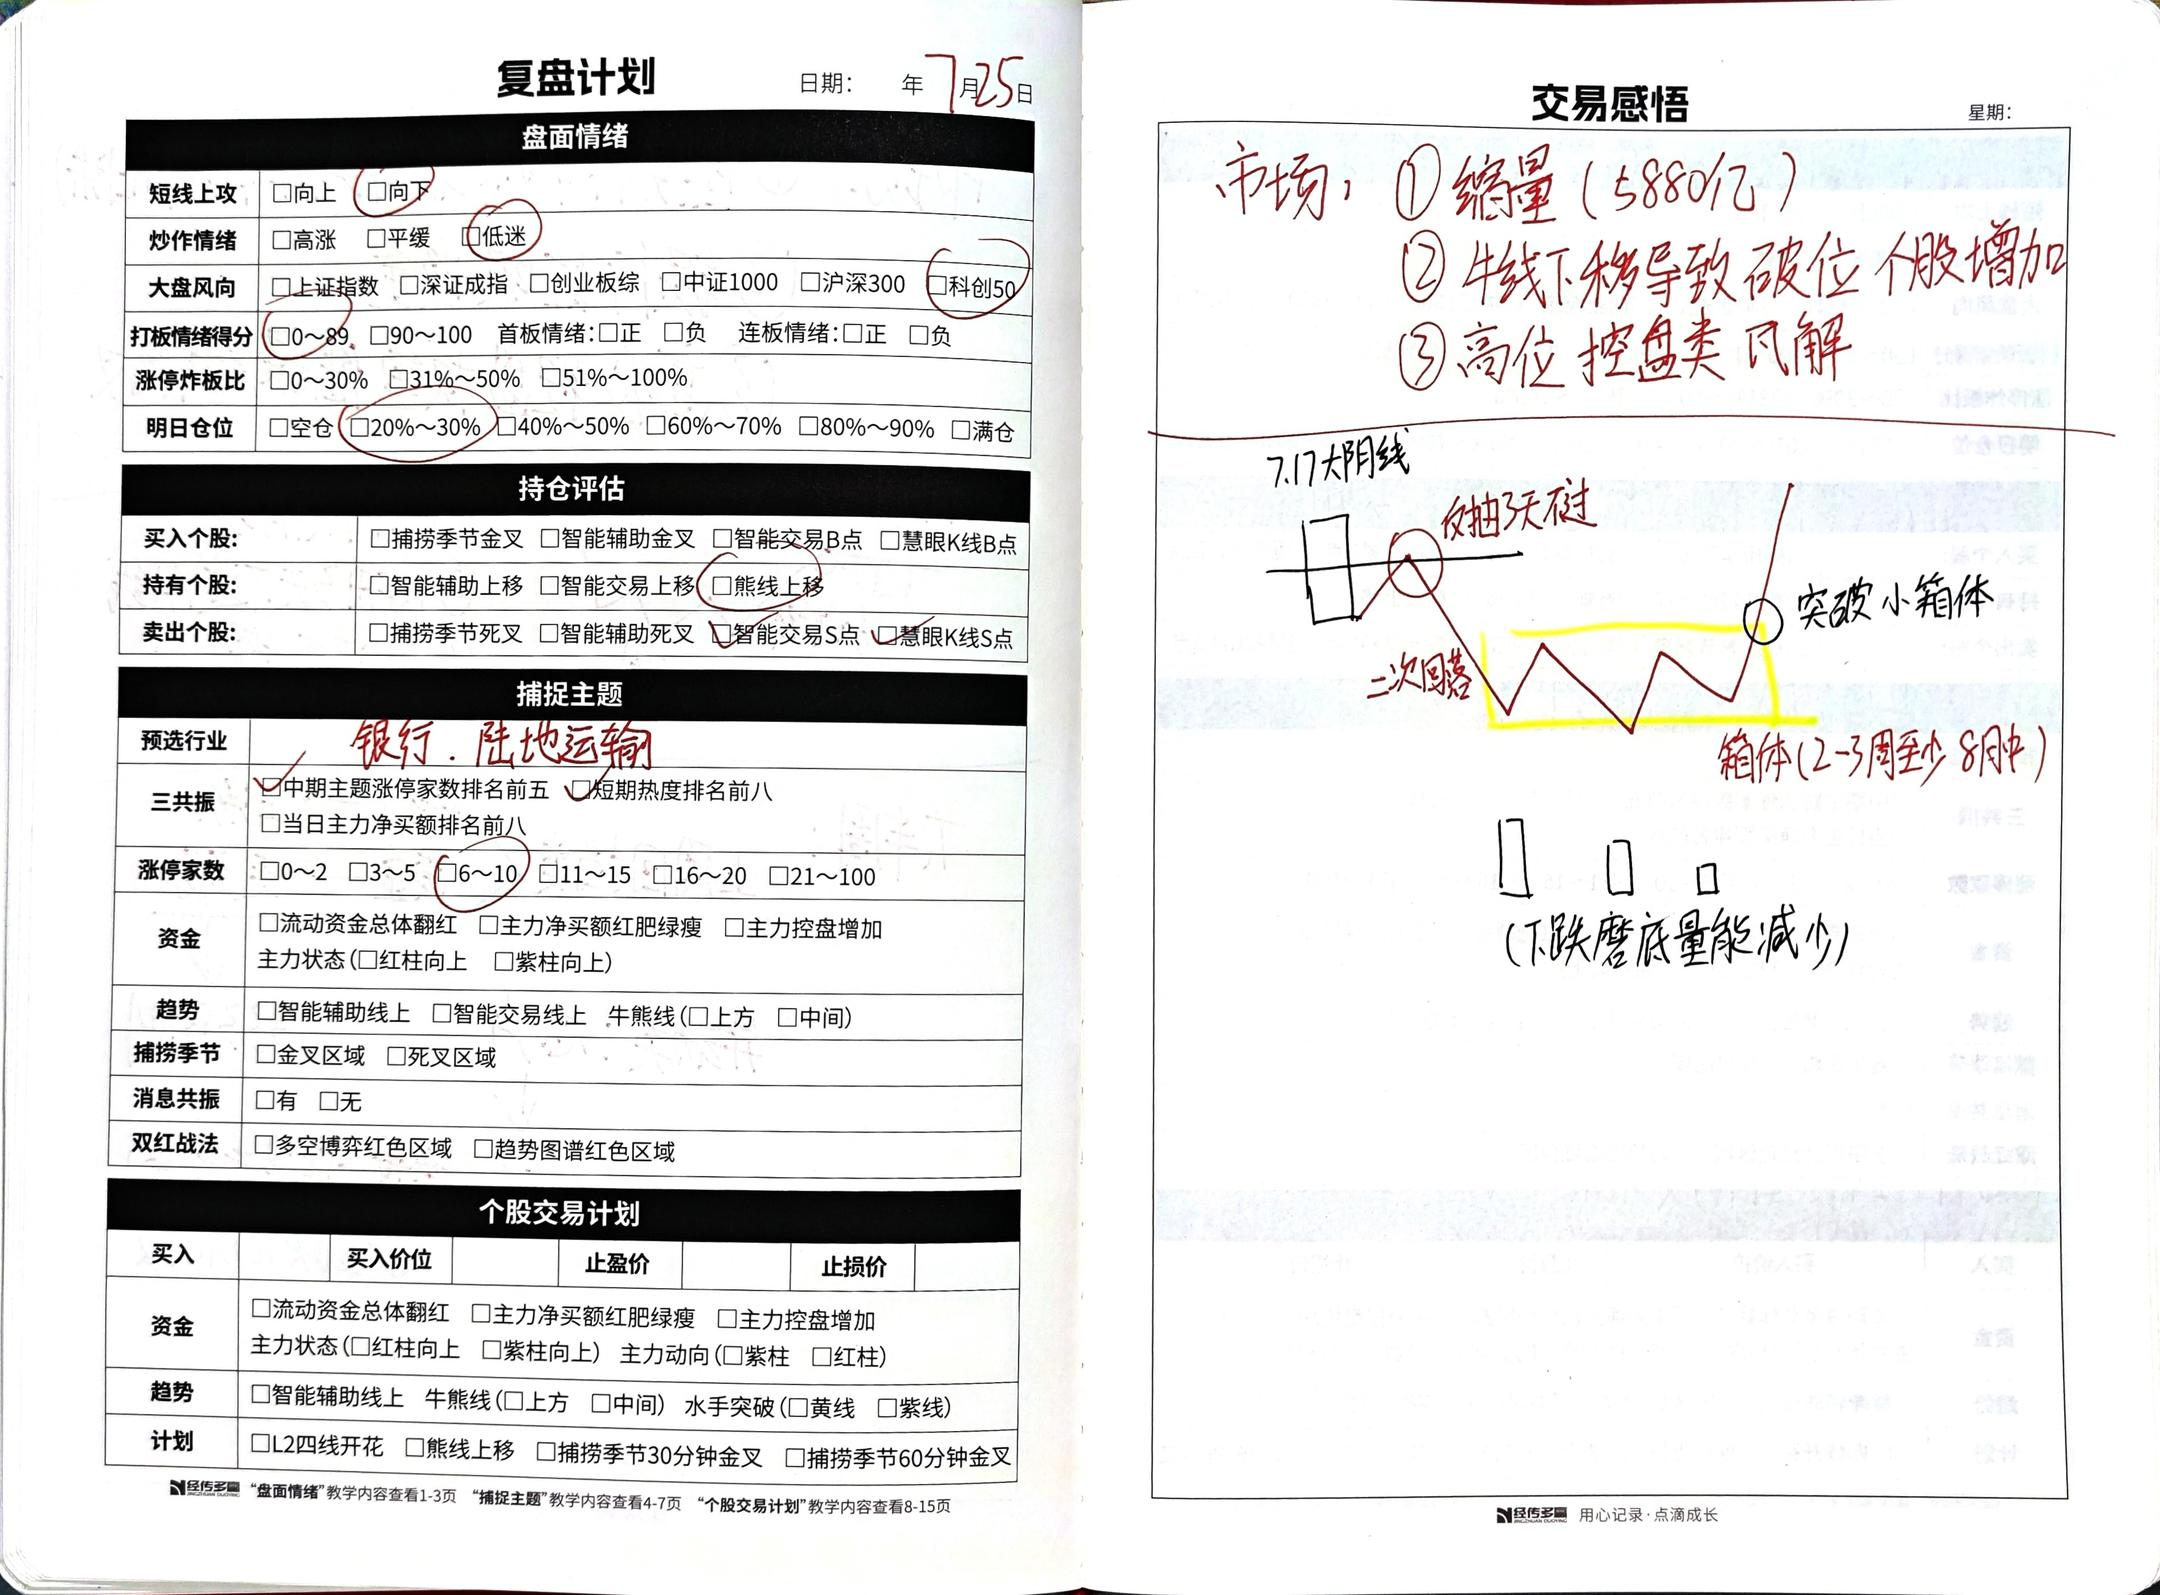 复盘计划
日期： 年7月25日
盘面情绪
短线上攻 □向上 □向下
炒作情绪 □高涨 □平缓 □低迷
大盘风向 □上证指数 □深证成指 □创业板综 □中证1000 □沪深300 □科创50
打板情绪得分 □0～89 □90～100 首板情绪：□正 □负 连板情绪：□正 □负
涨停炸板比 □0～30% □31%～50% □51%～100%
明日仓位 □空仓 □20%～30% □40%～50% □60%～70% □80%～90% □满仓
持仓评估
买入个股： □捕捞季节金叉 □智能辅助金叉 □智能交易B点 □慧眼K线B点
持有个股： □智能辅助上移 □智能交易上移 □熊线上移
卖出个股： □捕捞季节死叉 □智能辅助死叉 □智能交易S点 □慧眼K线S点
捕捉主题
预选行业 银行．陆地运输
三共振 □中期主题涨停家数排名前五 □短期热度排名前八
□当日主力净买额排名前八
涨停家数 □0～2 □3～5 □6～10 □11～15 □16～20 □21～100
资金 □流动资金总体翻红 □主力净买额红肥绿瘦 □主力控盘增加
主力状态（□红柱向上 □紫柱向上）
趋势 □智能辅助线上 □智能交易线上 牛熊线（□上方 □中间）
捕捞季节 □金叉区域 □死叉区域
消息共振 □有 □无
双红战法 □多空博弈红色区域 □趋势图谱红色区域
个股交易计划
买入 买入价位 止盈价 止损价
资金 □流动资金总体翻红 □主力净买额红肥绿瘦 □主力控盘增加
主力状态（□红柱向上 □紫柱向上） 主力动向（□紫柱 □红柱）
趋势 □智能辅助线上 牛熊线（□上方 □中间） 水手突破（□黄线 □紫线）
计划 □L2四线开花 □熊线上移 □捕捞季节30分钟金叉 □捕捞季节60分钟金叉
经传多赢 JINGZHUAN DUOYING “盘面情绪”教学内容查看1-3页 “捕捉主题”教学内容查看4-7页 “个股交易计划”教学内容查看8-15页
交易感悟
星期：
市场， ①缩量（5880亿）
②牛线下移导致破位个股增加
③高位控盘类瓦解
7.17大阴线
反抽3天不过
突破小箱体
二次回落
箱体（2-3周至少8月中）
（下跌磨底量能减少）
经传多赢 JINGZHUAN DUOYING 用心记录·点滴成长